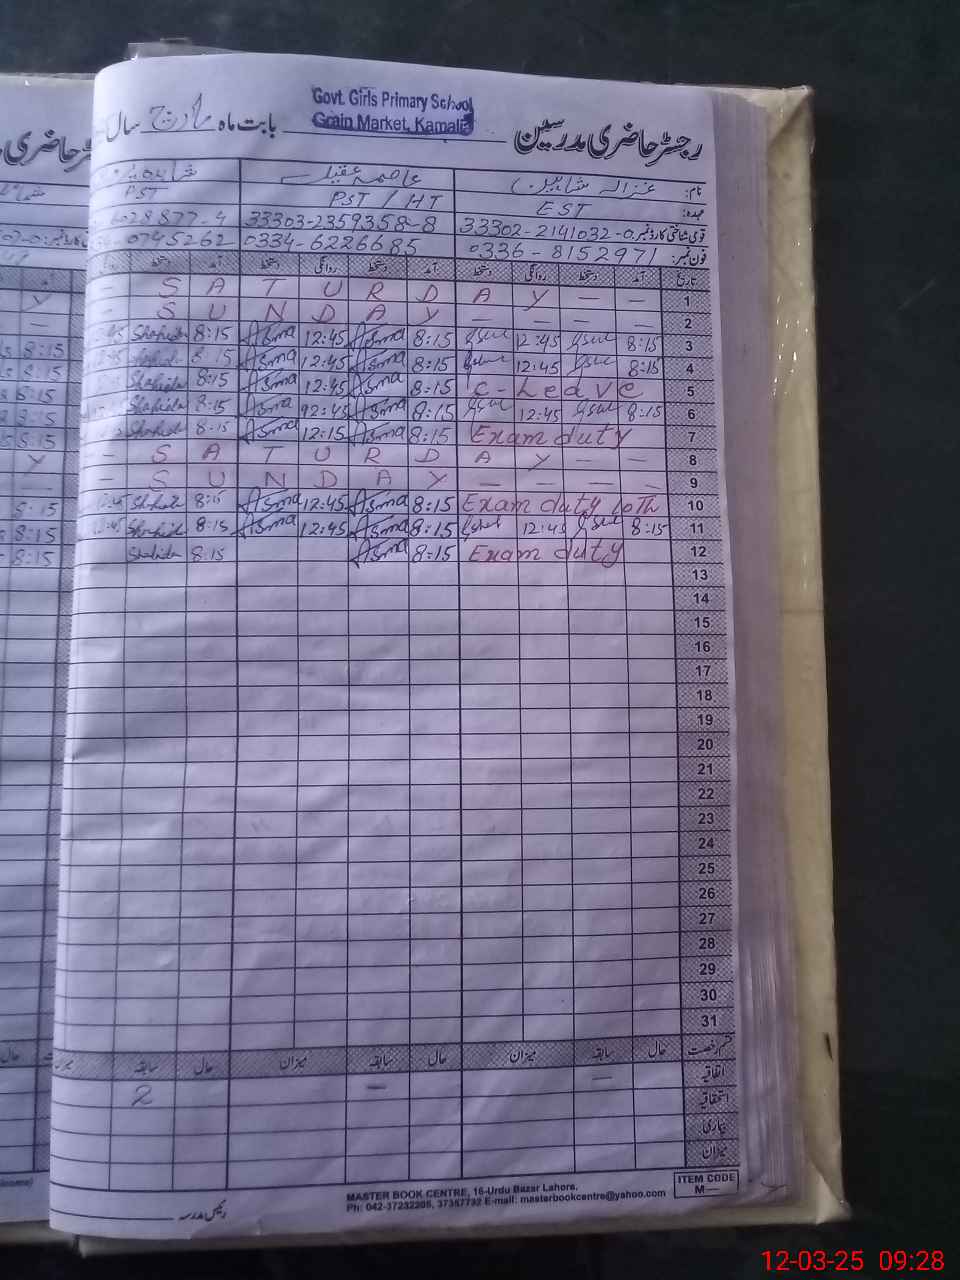 Govt. Girls Primary School
Grain Market, Kamalia
رجسٹر حاضری مدرسین بابت ماہ مارچ سال
نام: غزالہ شاہین عاصمہ عقیلہ شاہدہ
عہدہ: EST PST / HT PST
قومی شناختی کارڈ نمبر: 33302-2141032-0 33303-2359358-8 6028877-4
فون نمبر: 0336-8152971 0334-6226685 0745262
تاریخ آمد دستخط روانگی دستخط آمد دستخط روانگی دستخط آمد دستخط
- S A T U R D A Y - - 1
- S U N D A Y - - - - 2
Shahida 8:15 Asma 12:45 Asma 8:15 12:45 8:15 3
Shahida 8:15 Asma 12:45 Asma 8:15 12:45 8:15 4
Shahida 8:15 Asma 12:45 Asma 8:15 C-Leave 5
Shahida 8:15 Asma 12:45 Asma 8:15 12:45 8:15 6
Shahida 8:15 Asma 12:15 Asma 8:15 Exam duty 7
- - S A T U R D A Y - - 8
- S U N D A Y - - - - 9
Shahida 8:15 Asma 12:45 Asma 8:15 Exam duty 10th 10
Shahida 8:15 Asma 12:45 Asma 8:15 12:45 8:15 11
Shahida 8:15 Asma 8:15 Exam duty 12
13
14
15
16
17
18
19
20
21
22
23
24
25
26
27
28
29
30
31
قسم رخصت حال سابقہ میزان حال سابقہ میزان حال سابقہ
اتفاقیہ - - 2
استحقاقیہ
بیماری
میزان
ITEM CODE
M—
MASTER BOOK CENTRE, 16-Urdu Bazar Lahore.
Ph: 042-37232205, 37357732 E-mail: masterbookcentre@yahoo.com
رئیس مدرسہ
12-03-25 09:28